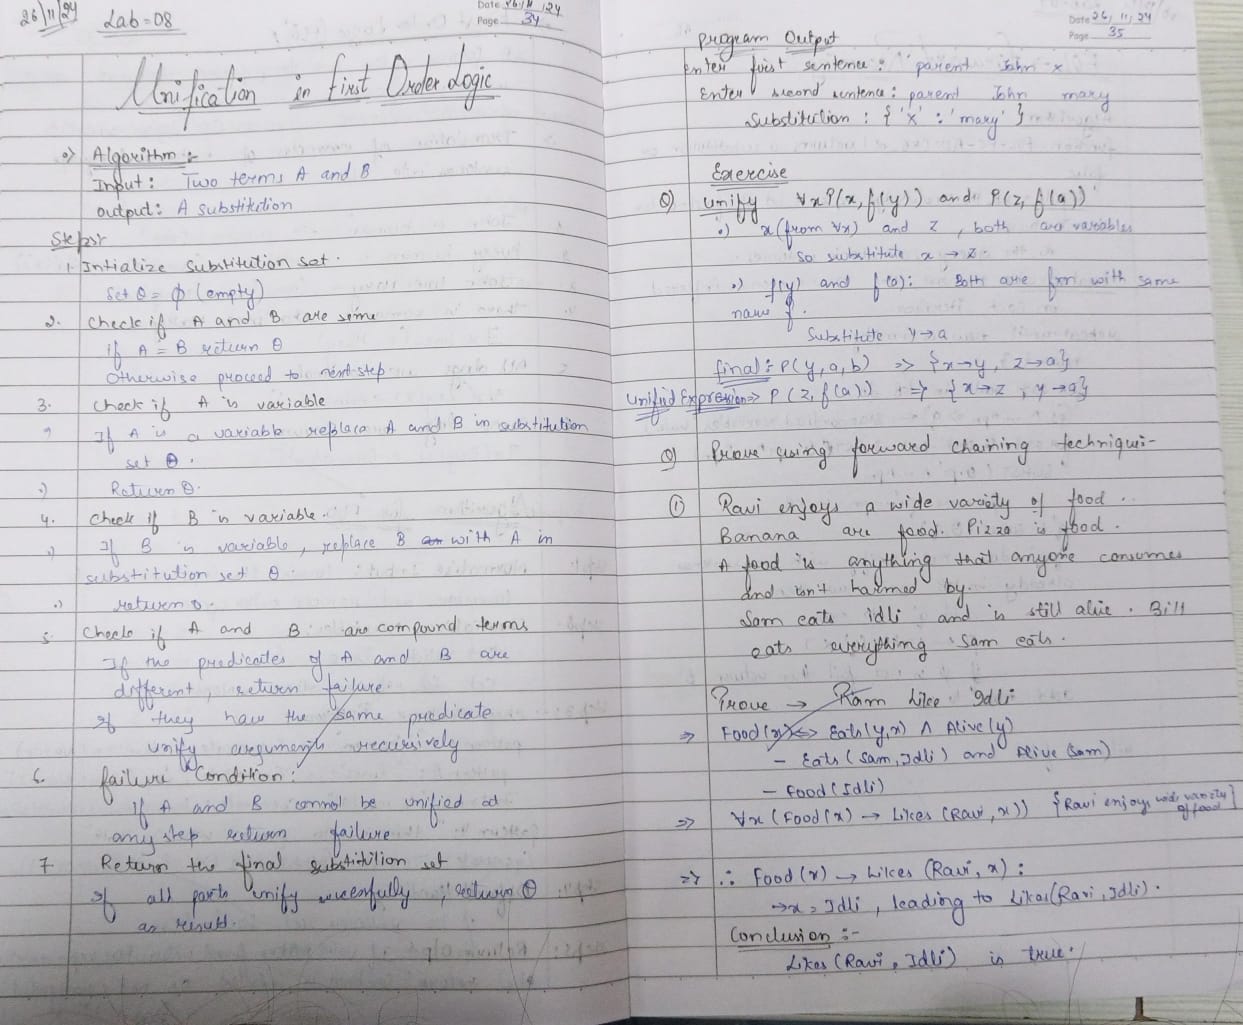 26/11/24
Lab-08
Date 26/11/24
Page 34
Unification in First Order Logic
Algorithm :-
Input : Two terms A and B
output : A substitution
Steps:
1. Intialize substitution set.
Set θ = ϕ (empty)
2. Check if A and B are same
if A = B return θ
Otherwise proceed to next step
3. Check if A is variable
If A is a variable replace A and B in substitution
set θ.
Return θ.
4. Check if B is variable.
If B is variable, replace B with A in
substitution set θ.
return θ.
5. Check if A and B are compound terms
If the predicates of A and B are
different, return failure.
If they have the same predicate
unify arguments recursively
6. failure Condition :
If A and B cannot be unified at
any step return failure
7. Return the final substitution set
If all parts unify successfully, return θ
as result.
Date 26/11/24
Page 35
Program Output
Enter first sentence : parent John x
Enter second sentence : parent John mary
Substitution : { 'x' : 'mary' }
Exercise
Q) Unify ∀x P(x, f(y)) and P(z, f(a))
.) x (from ∀x) and z, both are variables
so substitute x → z.
.) f(y) and f(a): Both are fnn with same
name f.
Substitute y → a
final : P(y, a, b) => {x→y, z→a}
Unified Expression => P(z, f(a)) => {x→z, y→a}
Q) Prove using forward chaining technique:-
① Ravi enjoys a wide variety of food.
Banana are food. Pizza is food.
A food is anything that anyone consumes
and isn't harmed by.
Sam eats idli and is still alive. Bill
eats everything Sam eats.
Prove → Ram Like Idli
=> Food(x) <=> Eats(y,x) ∧ Alive(y)
- Eats (Sam, Idli) and Alive (Sam)
- Food (Idli)
=> ∀x (Food(x) → Likes (Ravi, x)) {Ravi enjoys wide variety
of food}
=> ∴ Food (x) → Likes (Ravi, x) :
→ x = Idli, leading to Likes(Ravi, Idli).
Conclusion :-
Likes (Ravi, Idli) is true.